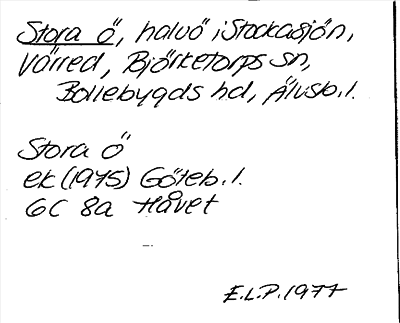 Stora Ö, halvö i Stockasjön,
Värred, Björketorps sn,
Bollebygds hd, Älvsb. l.
Stora Ö
ek (1975) Göteb. l.
6C 8a Håvet
E.L.P. 1977